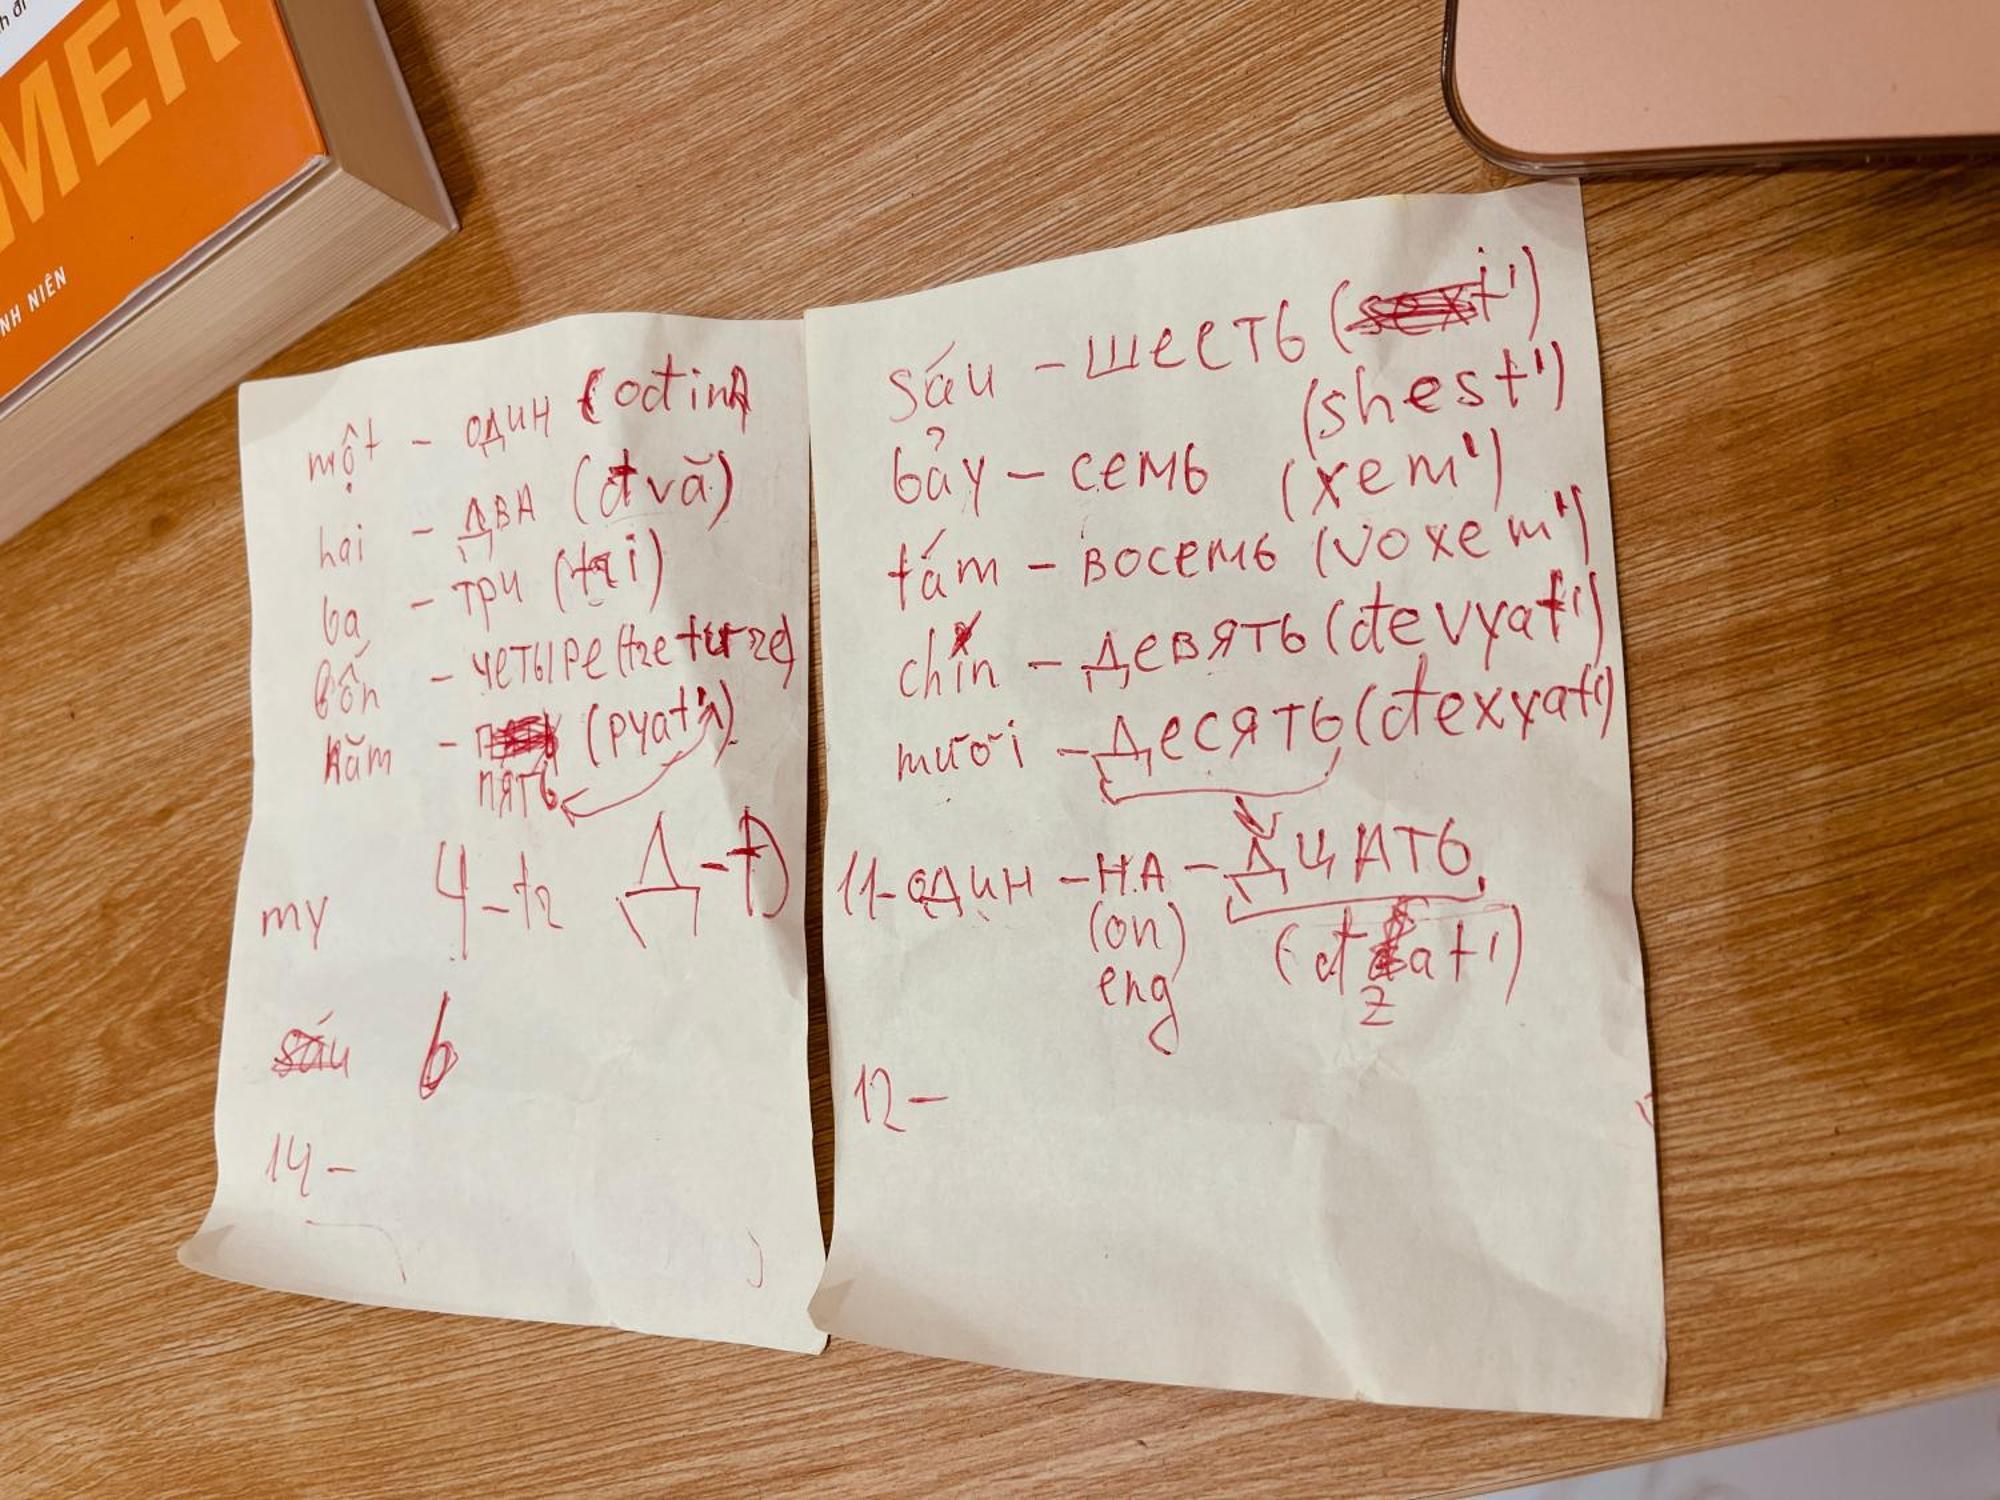 MER
NH NIÊN
một – один (ođin)
hai – два (đvă)
ba – три (tri)
bốn – четыре (tre tưre)
năm – (pyat')
пять
my Ч – tr Д – Đ
sáu 6
14 –
sáu – шесть (sext')
(shest')
bảy – семь (xem')
tám – восемь (voxem')
chín – девять (đevyat')
mười – десять (đexyat')
11 – один – на – дцать
(on) (đzat')
eng
12 –